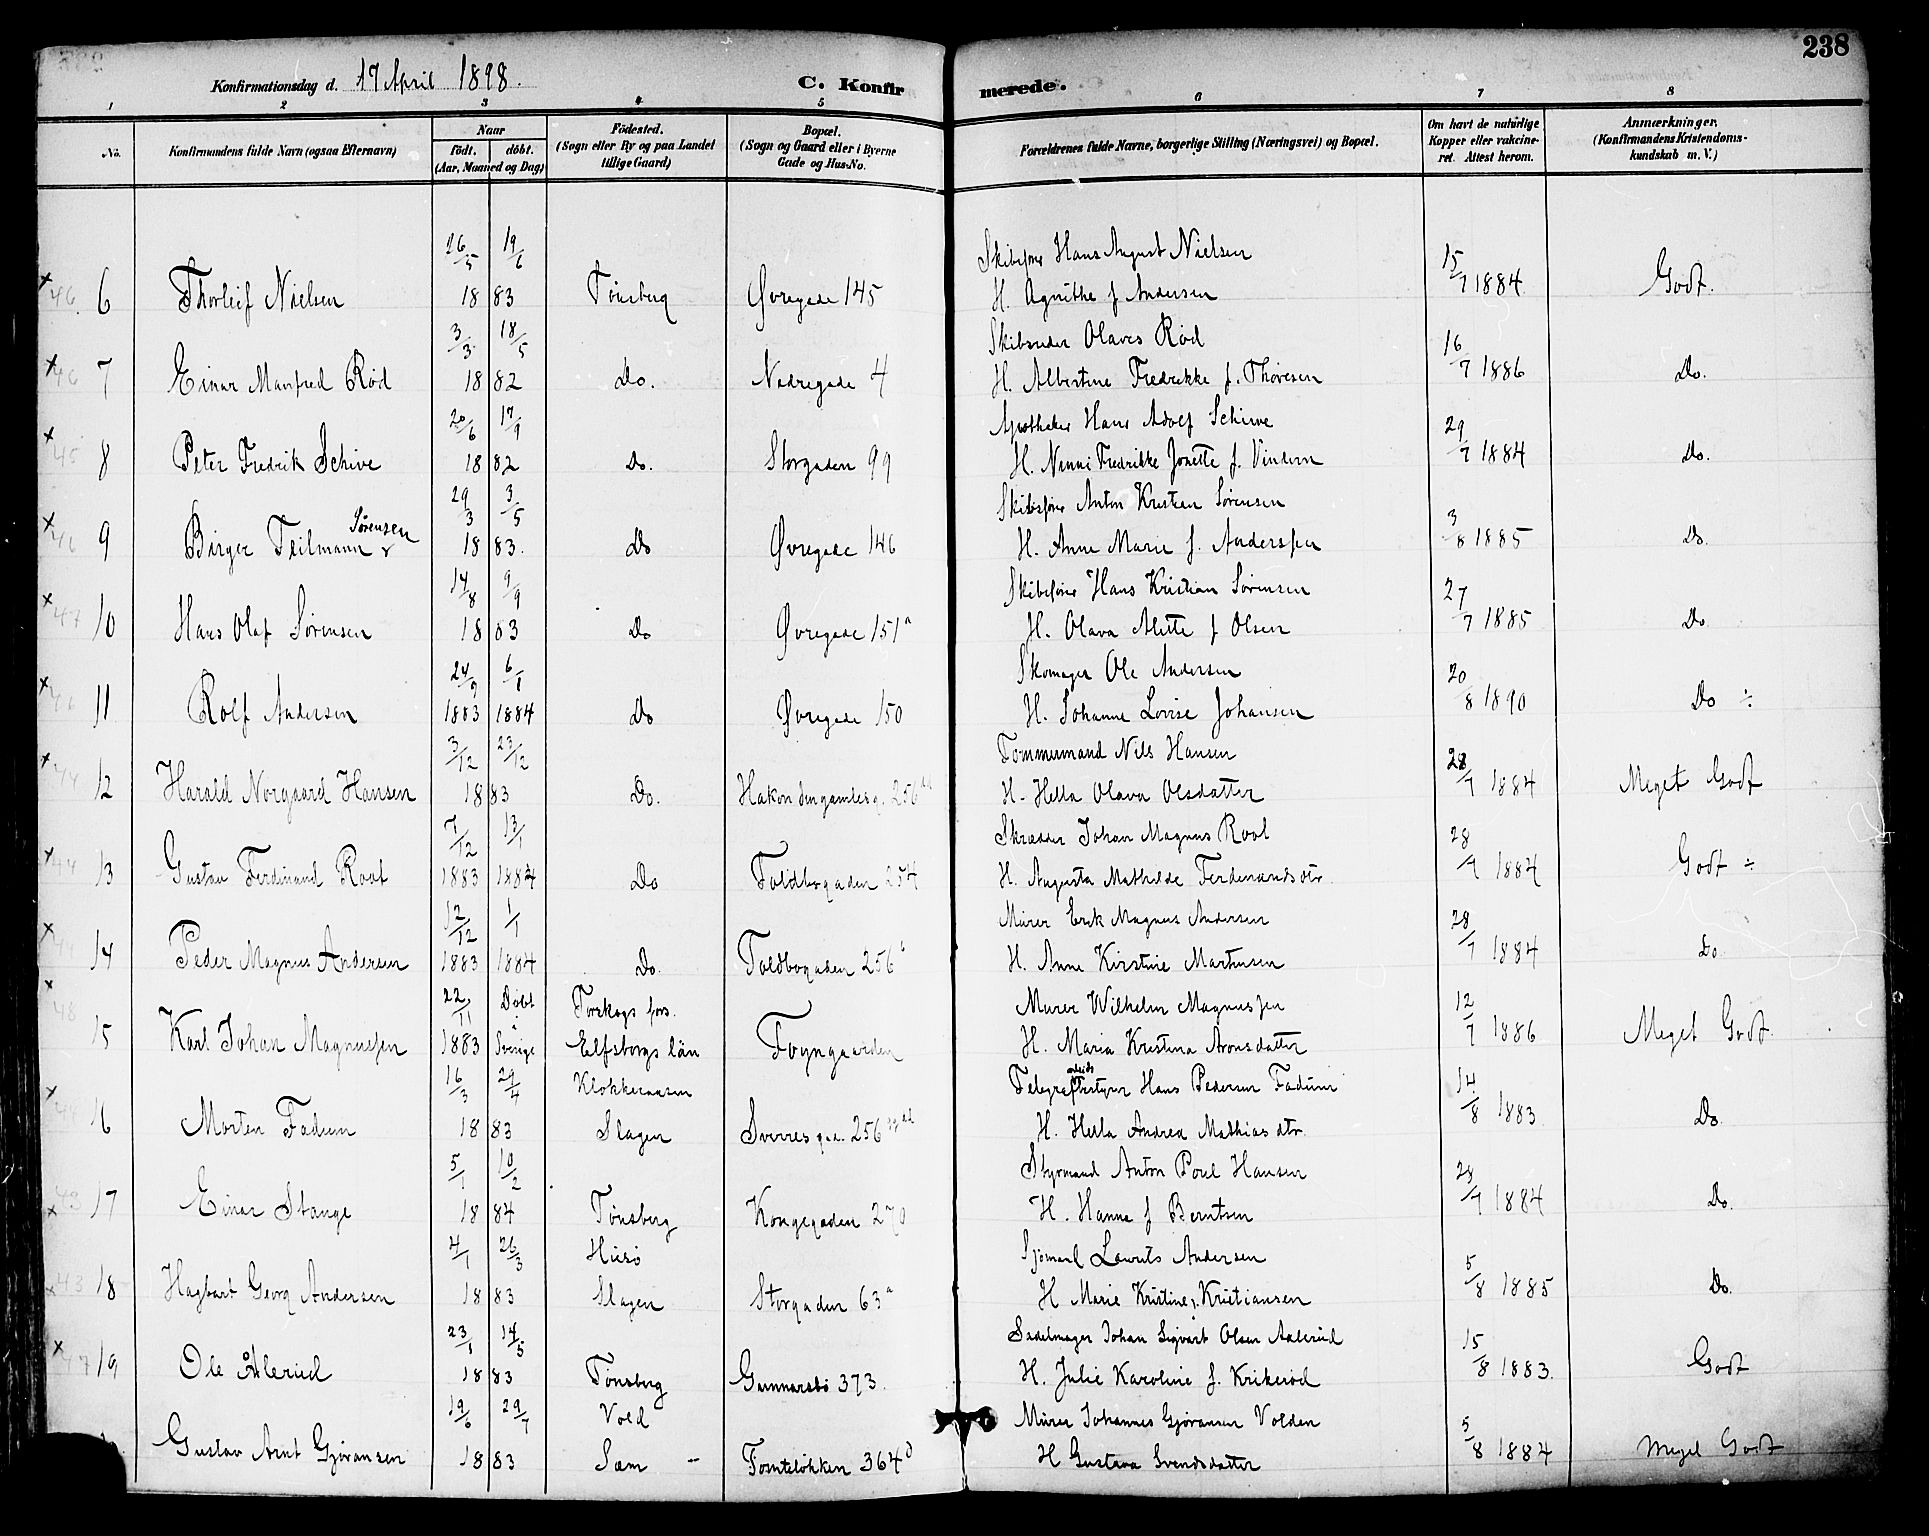 238
Konfirmationsdag d. 17 April 1898. C. Konfirmerede.
1 2 3 4 5 6 7 8
No. Konfirmandens fulde Navn (ogsaa Efternavn) Naar født. døbt. (Aar, Maaned og Dag) Fødested. (Sogn eller By og paa Landet tillige Gaard) Bopæl. (Sogn og Gaard eller i Byerne Gade og Hus-No. Forældrenes fulde Navne, borgerlige Stilling (Næringsvei) og Bopæl. Om havt de natúrlige Kopper eller vakcineret. Attest herom. Anmærkninger. (Konfirmandens Kristendomskundskab m. V.)
26/5 19/6 Skibsfører Hans August Nielsen 15/7 1884
6 Thorleif Nielsen 1883 Tønsberg Øvregade 145 H. Agnethe f Andersen Godt.
3/3 18/5 Skibsreder Olaves Rød 16/7 1886
7 Einar Manfred Rød 1882 Do. Nedregade 4 H. Albertine Fredrikke f. Thoresen Do.
20/6 17/9 Apotheker Hans Adolf Schive 29/7 1884
8 Peter Fredrik Schive 1882 Do. Storgaden 99 H. Nanni Fredrikke Jonette f. Vindern Do.
29/3 3/5 Skibsfører Anton Kristian Sørensen 3/8 1885
9 Birger Teilmann Sørensen 1883. Do Øvregade 146 H. Anne Marie f. Anderssen Do.
14/8 9/9 Skibsfører Hans Kristian Sørensen 27/7 1885
10 Hans Olaf Sørensen 1883 Do Øvregade 151a H. Olava Alette f Olsen Do
24/9 6/1 Skomager Ole Andersen 20/8 1890
11 Rolf Andersen 1883 1884 Do Øvregade 150 H. Johanne Lovise Johansen Do ÷
3/12 23/12 Tømmermand Nils Hansen 28/7 1884
12 Harald Norgaard Hansen 1883 Do. Hakon dengamlesg. 256 H. Hella Olava Olsdatter Meget Godt
7/12 13/1 Skrædder Johan Magnus Root 28/7 1884
13 Gustav Ferdinand Root 1883 1884 Do Toldbogaden 254 H. Augusta Mathilde Ferdenandsdtr. Godt ÷
12/12 1/1 Murer Erik Magnus Andersen 28/7 1884
14 Peder Magnus Andersen 1883 1884 Do. Toldbogaden 256 H. Anne Kirstine Martinsen Do.
22/11 Døbt Torskogs fors. Murer Wilhelm Magnussen 12/7 1886
15 Karl Johan Magnussen 1883 Sverige Elfsborgs län Foyngaarden H. Maria Kristina Aronsdatter Meget Godt.
16/3 29/4 Klokkeraasen Hans Pedersen Fadum 14/8 1883
16 Morten Fadum 1883 Slagen Sverresgd. 256 H. Hella Andrea Mathiasdtr. Do.
5/1 10/2 Styrmand Anton Poul Hansen 28/7 1884
17 Einar Stange 1884 Tønsberg Kongegaden 270 H. Hanna f Berntsen Do.
4/1 26/3 Husø Sjømand Laurits Andersen 5/8 1885
18 Hagbart Georg Andersen 1883 Slagen Storgaden 63a H Marie Kristine f. Kristiansen Do.
23/1 14/5 Sadelmager Johan Sigvart Olsen Aalerud 15/8 1883.
19 Ole Ålerud 1883 Tønsberg Gunnarsbø 373. H. Julie Karoline f. Krikerød Godt
19/6 29/7 Vold Murer Johannes Gjøransen Volden 5/8 1884
Gustav Arnt Gjøransen 1883 Sem - Tomteløkken 364 H Gustava Svendsdatter Meget Godt